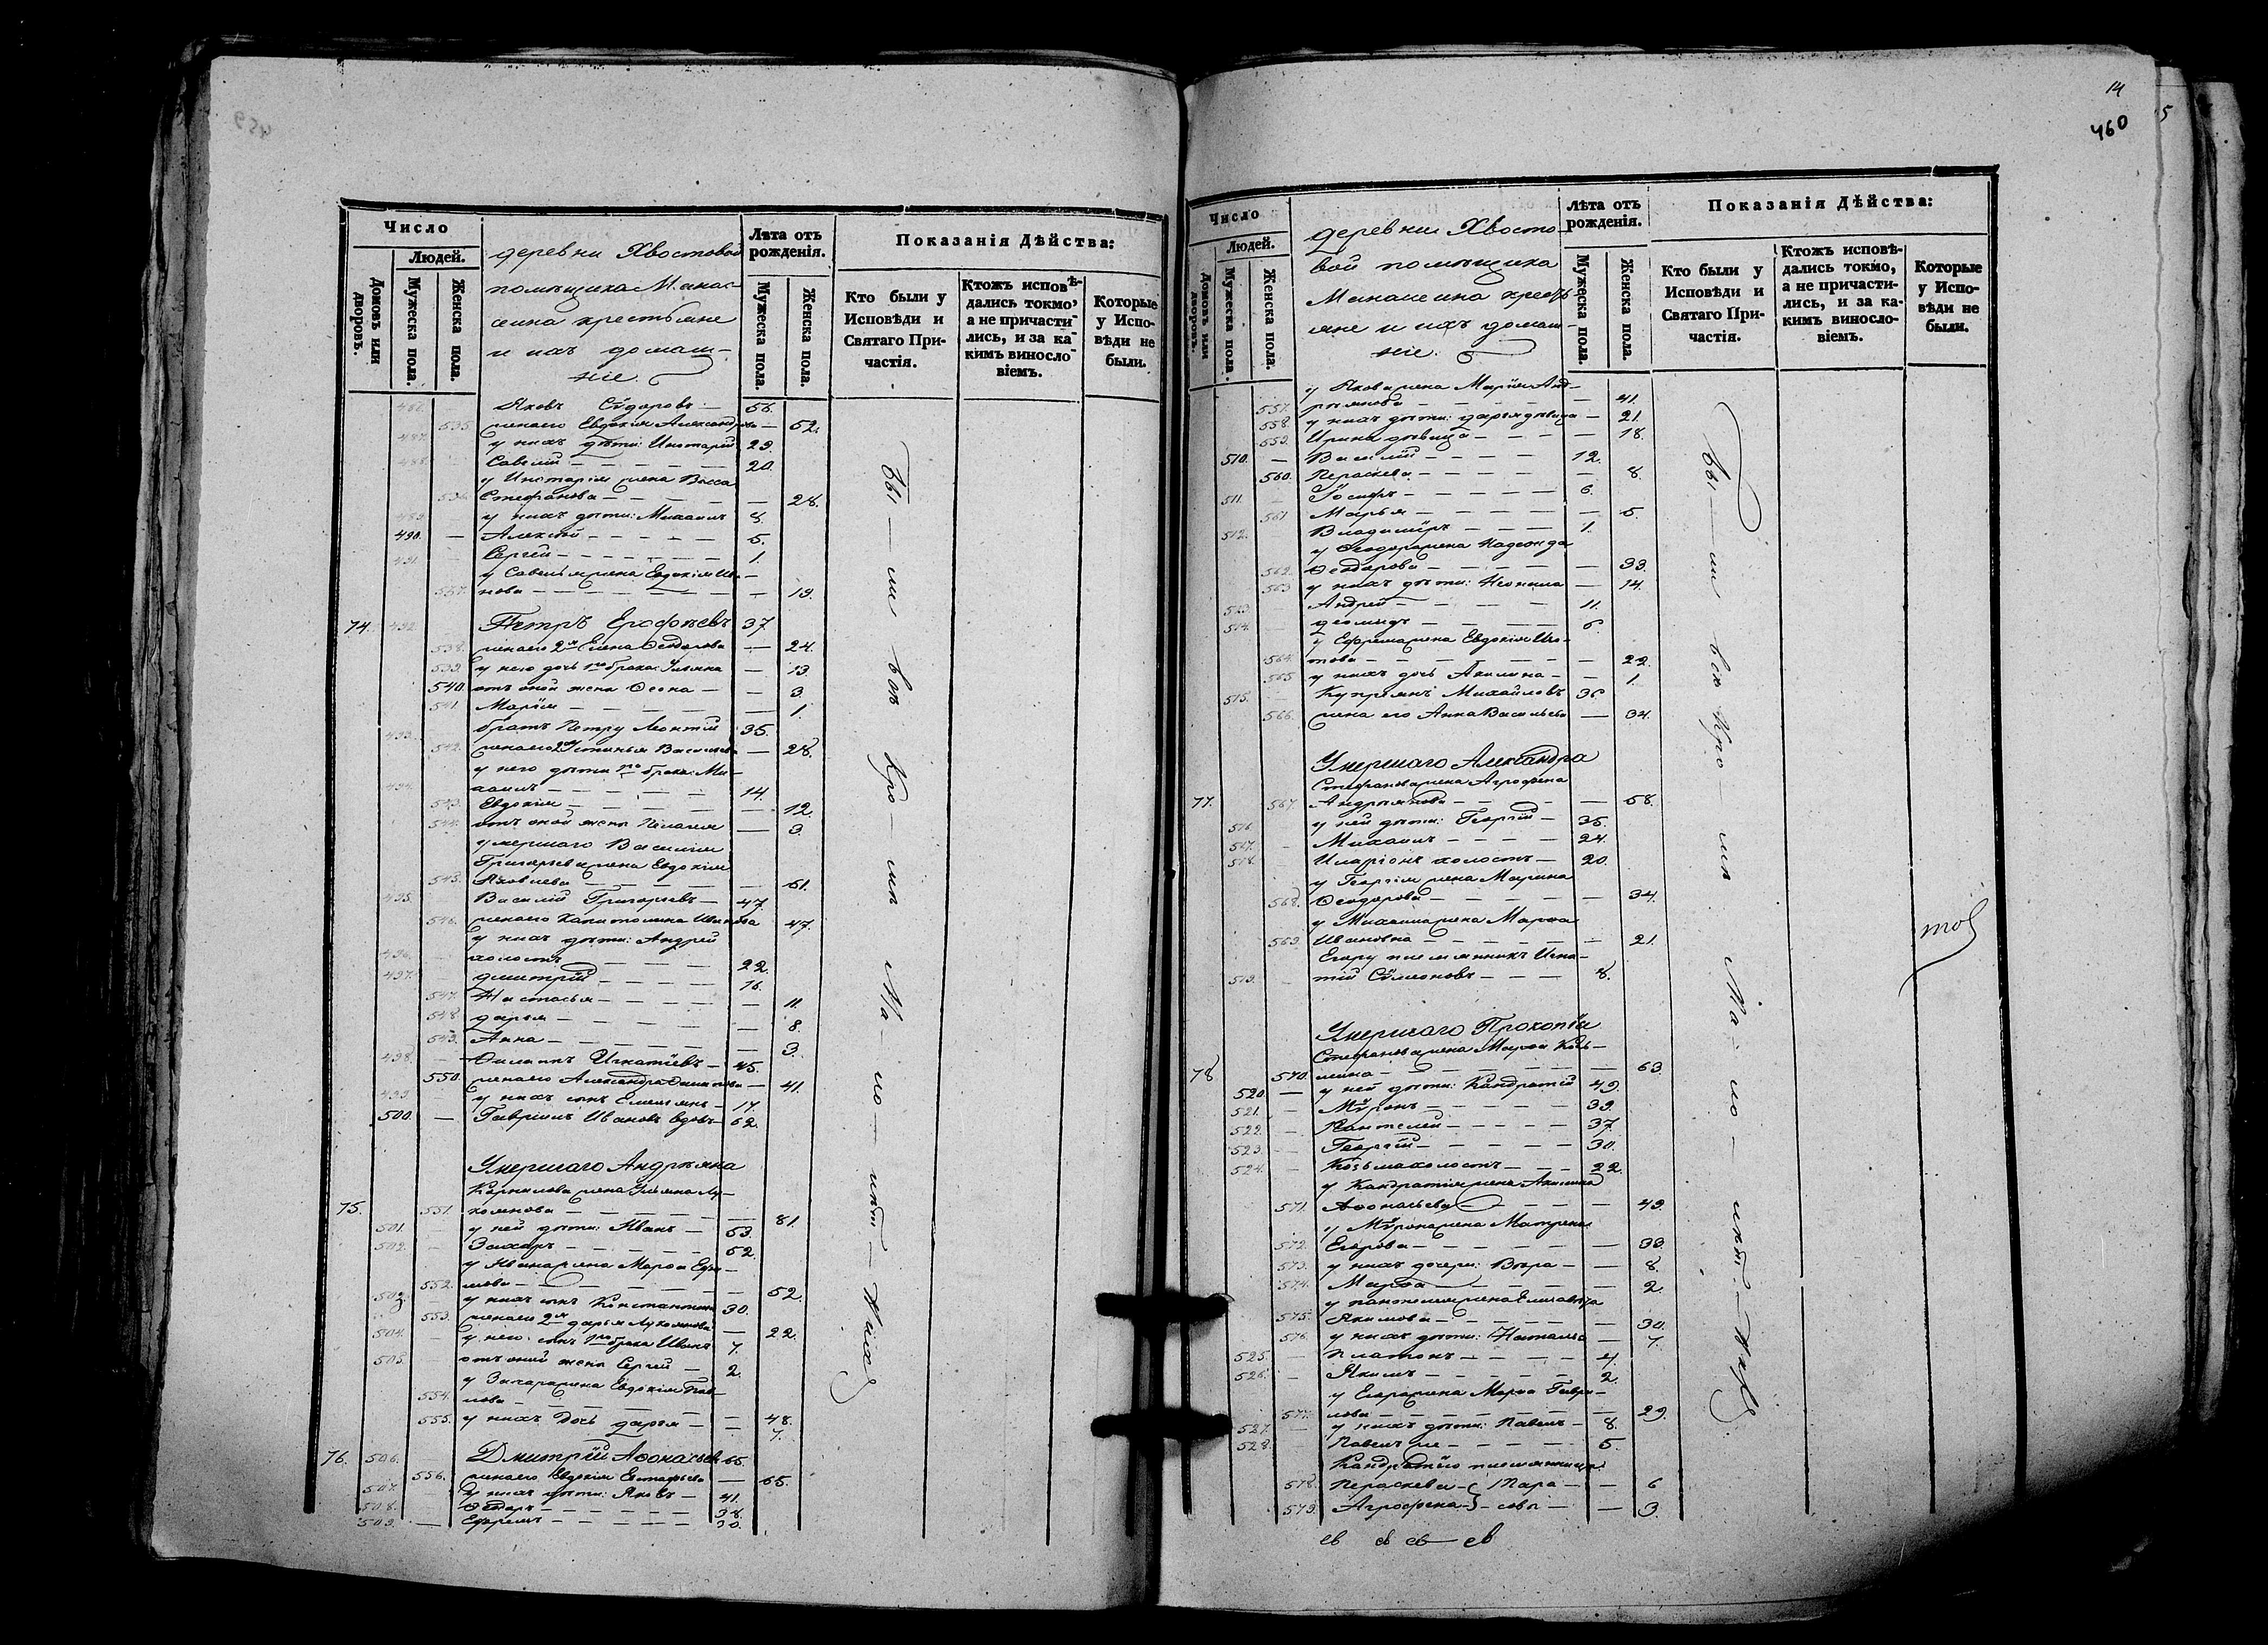 14
460
Число
Людей.
Домовъ или дворовъ.
Мужеска пола.
Женска пола.
деревни Хвостовой
помѣщика Мана-
сеина крестьяне
и ихъ домаш-
ніе.
Лѣта отъ рожденія.
Мужеска пола.
Женска пола.
Показанія Дѣйства:
Кто были у Исповѣди и Святаго Причастія.
Ктожъ исповѣдались токмо, а не причастились, и за какимъ винословіемъ.
Которые у Исповѣди не были.
486. Яковъ Сѵдоровъ 56.
535. жена его Евдокія Александрова 52.
487. у нихъ дѣти: 29.
488. Савелій 20.
жена Васса
536. Стефанова 28.
489. у нихъ дѣти: Михаилъ 8.
490. Алексѣй 5.
491. Сергей 1.
у Савелья жена Евдокія Ива-
537. нова 19.
74. 492. Петръ Ерофѣевъ 37.
538. жена его 2я Елена Ѳеодорова 24.
539. у него дочь 1го брака Ульяна 13.
540. отъ оной жены 3.
541. Марія 1.
братъ Петру
493. Леонтій 35.
542. жена его 2я Устинья Васильева 28.
у него дѣти 1го брака: Ми-
494. хаилъ 14.
543. Евдокія 12.
544. отъ оной жены Пелагея 3.
умершаго Василія
Григорьева жена Евдокія
545. Яковлева 61.
495. Василій Григорьевъ 47.
546. жена его Капитолина Иванова 47.
у нихъ дѣти: Андрей
496. холостъ 22.
497. Димитрій 16.
547. Настасья 11.
548. Дарья 8.
549. Анна 3.
498. Филиппъ Игнатіевъ 45.
550. жена его Александра Филипова 41.
499. у нихъ сынъ Емельянъ 17.
500. Гавріилъ Ивановъ вдовъ 52.
Умершаго Андреяна
Корнилова жена Ульяна Лу-
75. 551. коянова 81.
501. у ней дѣти: Иванъ 53.
502. Захаръ 52.
у Ивана жена Марѳа Ефи-
552. мова 52.
503. у нихъ сынъ Константинъ 30.
553. жена его 2я Дарья Лукоянова 22.
504. у него сынъ 1го брака Иванъ 7.
505. отъ оной жены Сергей 2.
у Захара жена Евдокія Пав-
554. лова 48.
555. у нихъ дочь Дарья 7.
76. 506. Дмитрій Аѳонасьевъ 65.
556. жена его Евдокія Евстафьева 65.
507. у нихъ дѣти: Яковъ 41.
508. Ѳедоръ 38.
509. Ефремъ 30.
Бы-ли въ Кро-мѣ Ма-ло-лѣт-нихъ
Число
Людей.
Домовъ или дворовъ.
Мужеска пола.
Женска пола.
деревни Хвосто-
вой помѣщика
Манасеина кресть-
яне и ихъ домаш-
ніе.
Лѣта отъ рожденія.
Мужеска пола.
Женска пола.
Показанія Дѣйства:
Кто были у Исповѣди и Святаго Причастія.
Ктожъ исповѣдались токмо, а не причастились, и за какимъ винословіемъ.
Которые у Исповѣди не были.
у Якова жена Марія Анд-
557. реянова 41.
558. у нихъ дѣти: Дарья дѣвица 21.
559. Ирина дѣвица 18.
510. Василій 12.
560. Пераскева 8.
511. Іосифъ 6.
561. Марья 5.
512. Владимiръ 1.
у Ѳеодора жена Надежда
562. Ѳеодорова 33.
563. у нихъ дѣти: Неонила 14.
513. Андрей 11.
514. Діомидъ 6.
у Ефрема жена Евдокія
564. 22.
565. у нихъ дочь Акилина 1.
515. Купреянъ Михайловъ 36
566. жена его Анна Васильева 34.
Умершаго Александра
Стефанова жена Агрофена
77. 567. Андреянова 58.
516. у ней дѣти: Георгій 35.
517. Михаилъ 24.
518. Иларіонъ холостъ 20.
у Георгія жена Марина
568. Ѳеодорова 34.
у Михаила жена Марѳа
569. Ивановна 21.
Егору племянникъ Игна-
519. тій Сѵмеоновъ 8.
Умершаго Прокопія
Стефанова жена Марѳа Козь-
78. 570. мина 63.
520. у ней дѣти: Кандратій 49.
521. Мѵронъ 39.
522. Пантелей 37.
523. Георгій 30.
524. Козьма холостъ 22.
у Кандратія жена Акилина
571. Аѳонасьева 49.
у Мѵрона жена Матрена
572. Егорова 33.
573. у нихъ дочери: Вѣра 8.
574. Марѳа 2.
у Пантелея жена Елисавета
575. Якимова 30.
576. у нихъ дѣти: Наталья 7.
525. Платонъ 4.
526. Якимъ 2.
у Егора жена Марѳа Гаври-
577. лова 29.
527. у нихъ дѣти: Павелъ 8.
528. Павелъ же 5.
Кандратію племянницы
578. Пераскева 6
579. Агрофена 3.
Бы-ли всѣ Кро-мѣ Ма-ло-лѣт-нихъ